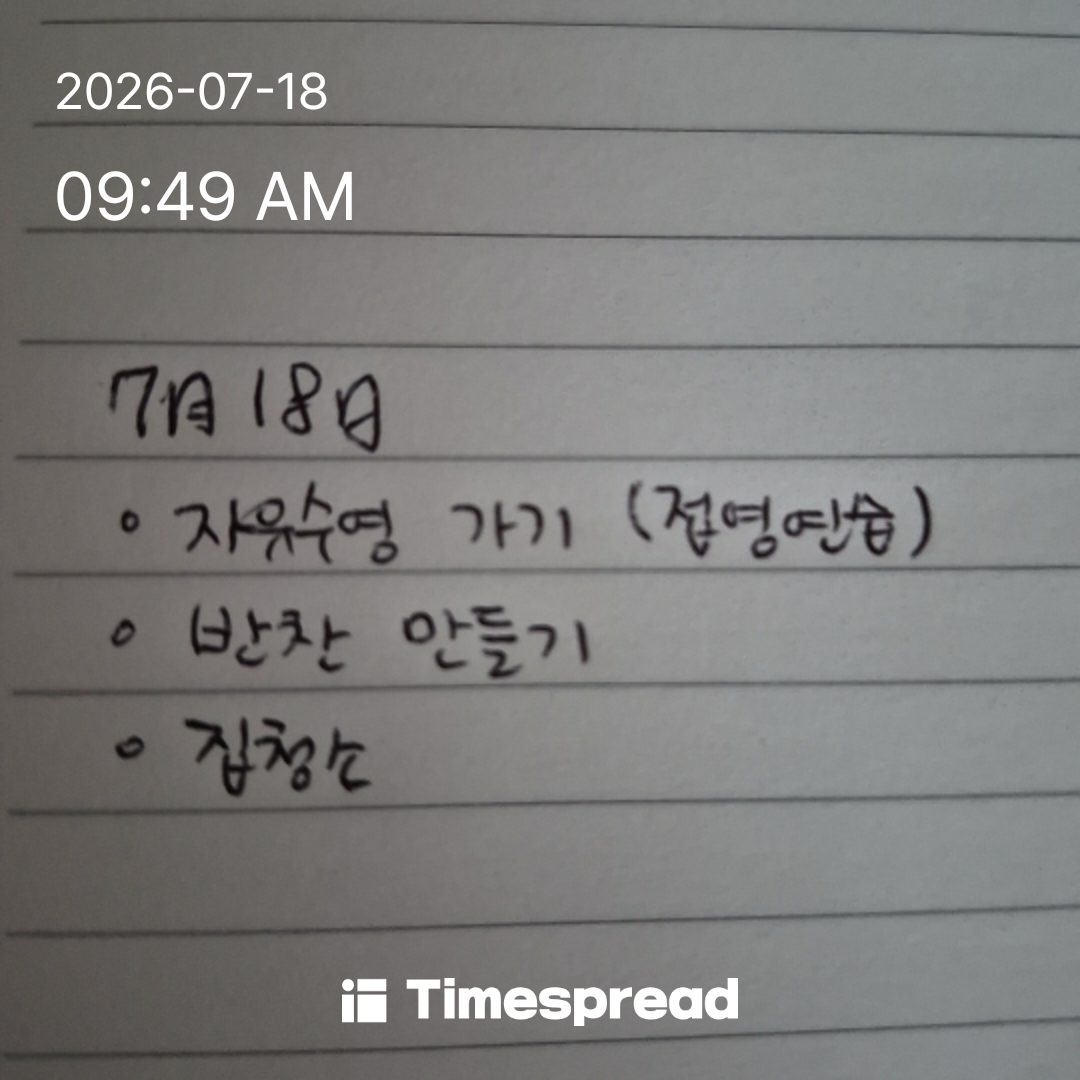 2026-07-18
09:49 AM
7月 18日
• 자유수영 가기 (접영연습)
• 반찬 만들기
• 집청소
Timespread